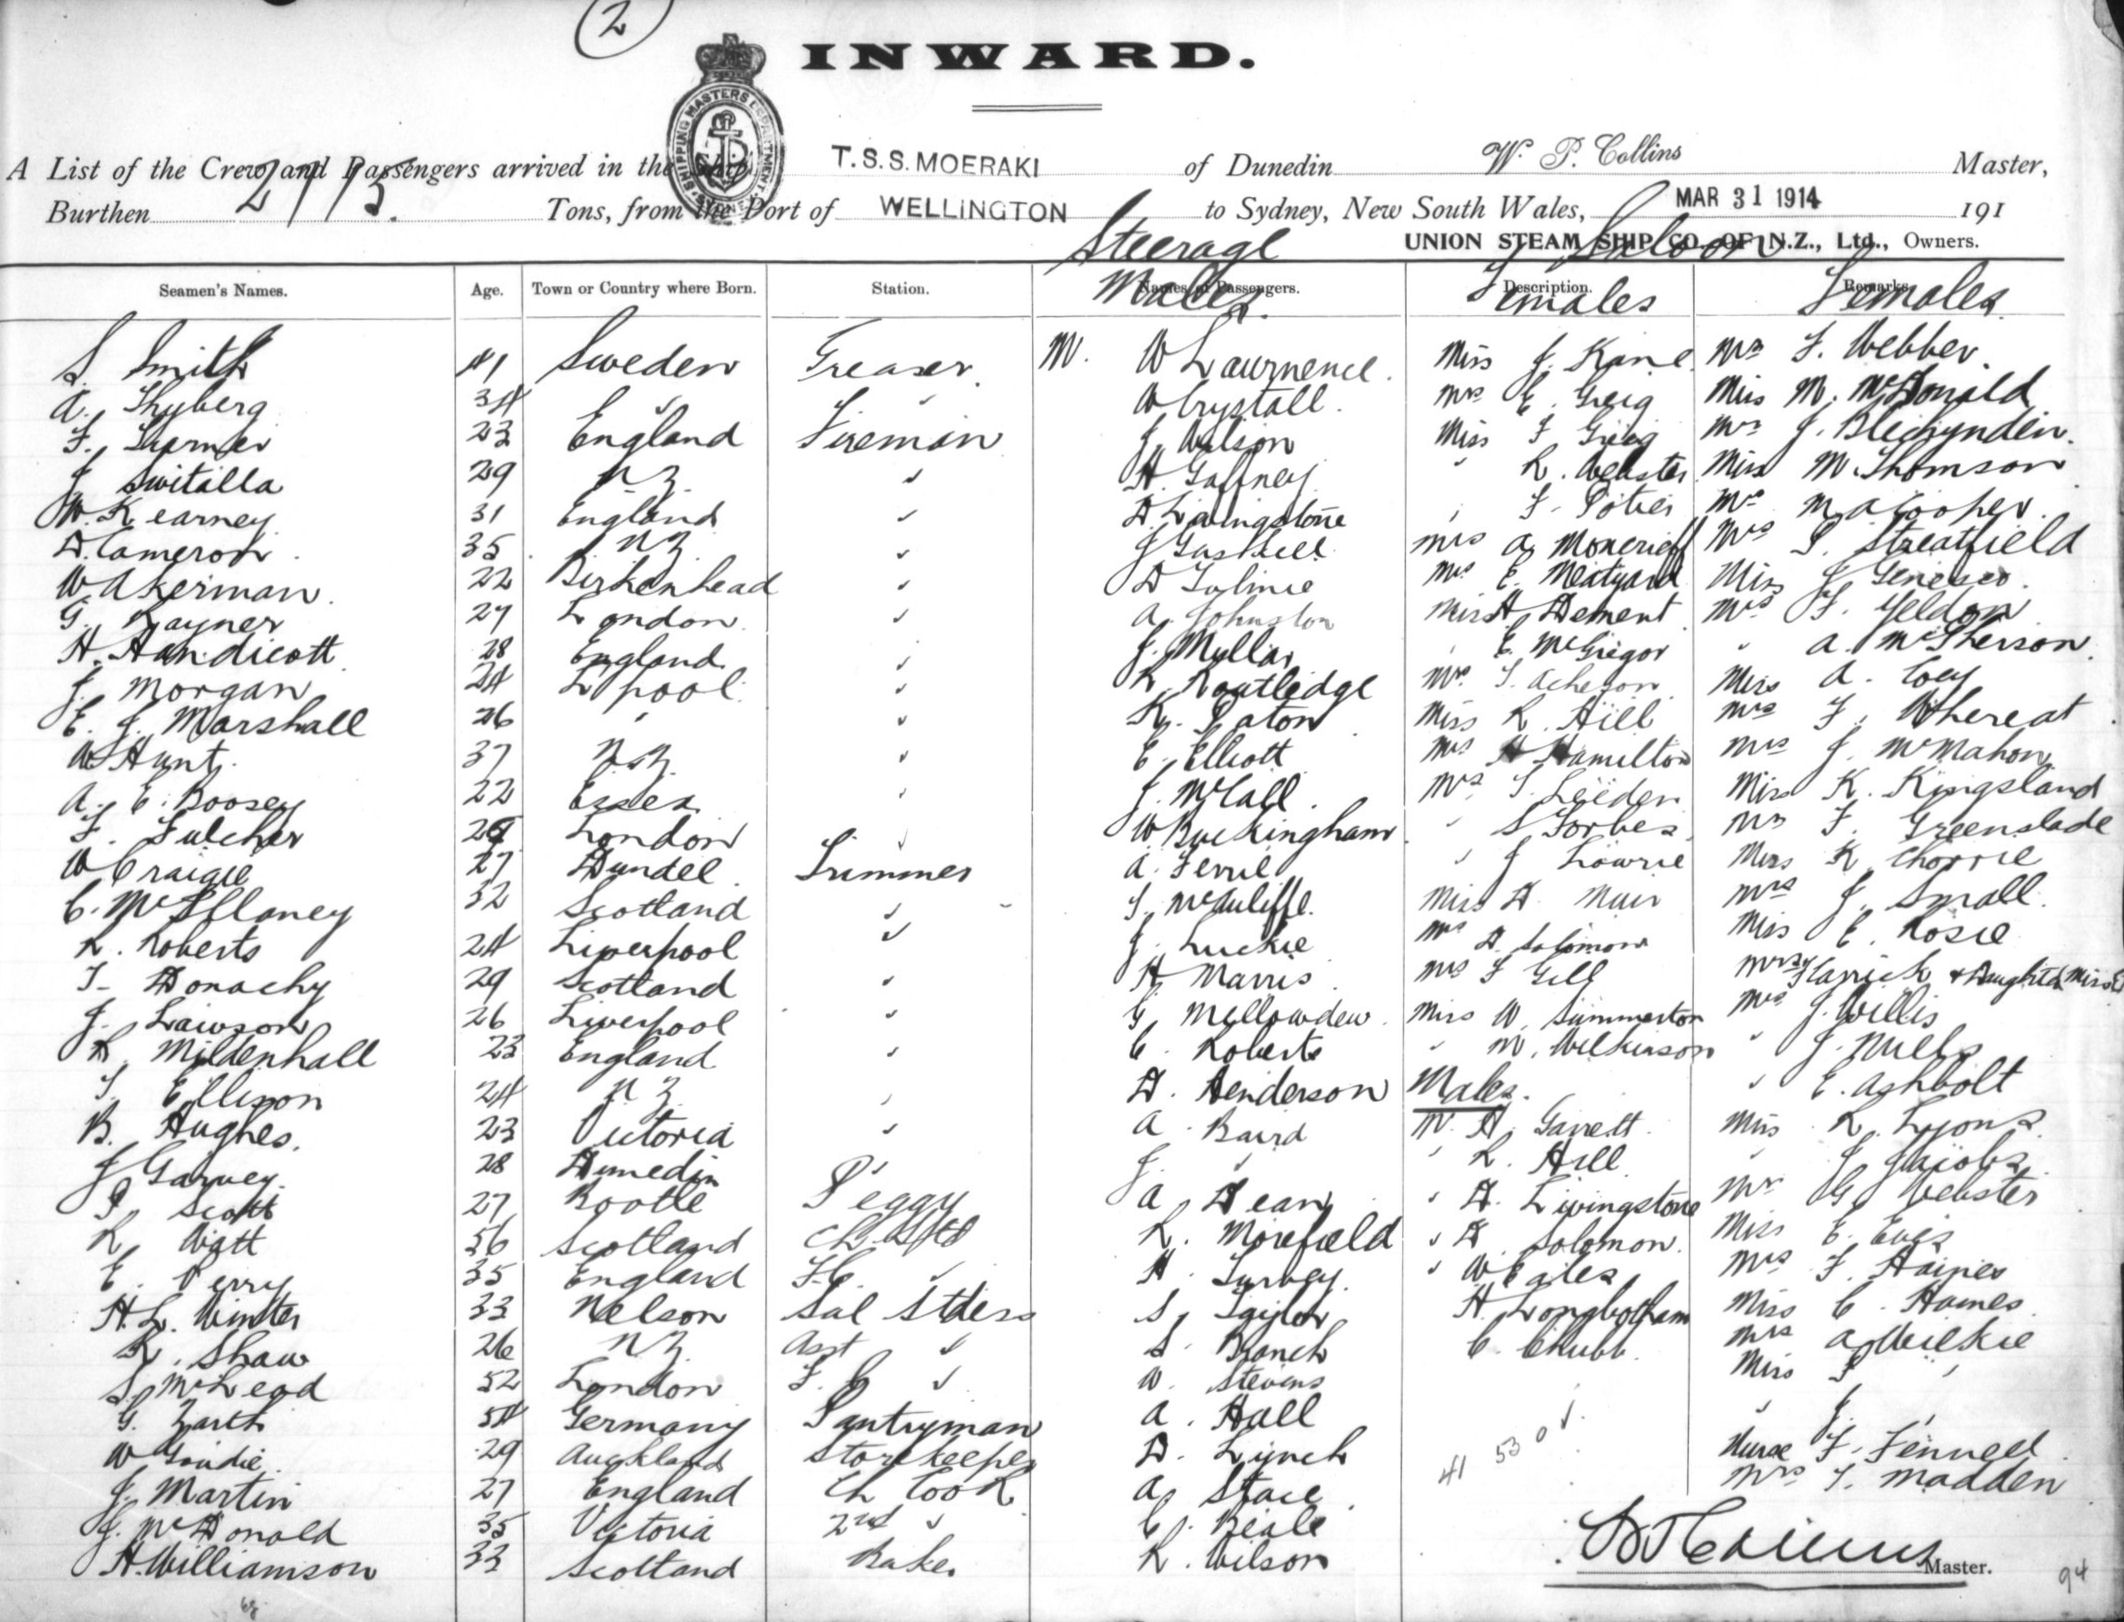 2
INWARD.
SHIPPING MASTERS DEPARTMENT SYDNEY
A List of the Crew and Passengers arrived in the Ship T.S.S. MOERAKI of Dunedin W. P. Collins Master,
Burthen 2715. Tons, from the Port of WELLINGTON to Sydney, New South Wales, MAR 31 1914 191
UNION STEAM SHIP CO. OF N.Z., Ltd., Owners.
Steerage Saloon
Seamen's Names. Age. Town or Country where Born. Station. Names of Passengers. Description. Remarks.
Males. Females Females
S. Smith 41 Sweden Greaser. M. W Lawrnence. Miss J. Kane Mrs F. Webber.
A. Thyberg 34 " " W Crystall. Mrs E. Greig Miss M. McDonald
F. Turner 23 England Fireman J. Wilson Miss F Greig Mrs J. Blechynden.
J. Switalla 29 N.Z. " H. Gaffney " R. Webster Miss M. Thomson
W. Kearney 31 England " D. Livingstone " F. Mrs M A Cooper.
D. Cameron 35 N.Z. " J Gaskell Mrs A Moncrieff Mrs S. Streatfield
W Akerman. 22 Birkenhead " D Tolmie Mrs E. Meatyard Miss J
G. Rayner 27 London " A. Johnston Miss H Dement Mrs F. Yeldon
H. Handicott 28 England " J. Myllar " E. McGregor " A. McPherson.
J. Morgan 24 L'pool " R Routledge Mrs T. Acheson Miss A. Coey
E. J. Marshall 26 " " K. Paton Miss R Hill Mrs F. Whereat
W Hunt. 37 N.Z. " E. Elliott Mrs H Hamilton Mrs J. McMahon
A. E. Boosey 22 Essex " J. McCall. Mrs T. Leeden Miss K. Kingsland
F. Fulcher London " W Buckingham. " S Forbes. Mrs F. Greenslade
W Craigie 27 Dundee Trimmer A. " J Lowrie Miss K Chorrie
C. McIlflaney 32 Scotland " T. McAuliffe. Miss D. Muir Mrs J. Small.
R. Roberts 24 Liverpool " J. Luckie Mrs D. Solomon Miss E. Rosie
T. Donachy 29 Scotland " H Marris Mrs F Gill Mrs & Daughter Miss
J. Lawson 26 Liverpool " G. Mellowdew. Miss W. Summerton Mrs J. Willis
R. Mildenhall 23 England " C. Roberts " M. Wilkinson " J. Mills
T. Ellison 24 N Z. " D. Henderson Males. " E. Ashbolt
B. Hughes. 23 Victoria " A. Baird M. H. Garrett Miss R. Lyons.
J Garvey. 28 Dunedin " J. " " R. Hill " J Jacobs.
P. Scott 27 Bootle Peggy A. Dean " D. Livingstone Mrs G. Webster
R. Watt 56 Scotland Ch. Std R. Morefield " D. Solomon. Miss E. Eves
E. Perry 35 England F.C. " H. Turvey. " W Eales Mrs F. Haines
H. L. Winter 33 Nelson Sal Stders S. Taylor H. Longbotham Miss C. Haines
R. Shaw 26 N Z. Asst " S. Branch C. Chubb. Mrs A Wilkie
S. McLeod 52 London F. C " W. Stevens Miss P "
G. Zarth 54 Germany Pantryman A. Hall " J. "
W Goudie. 29 Auckland Storekeeper D. Lynch Nurse F. Fennell
J. Martin 27 England Ch Cook A. Stace. Mrs T. Madden
J. McDonald 35 Victoria 2nd " C. Beale
H. Williamson 33 Scotland Baker R. Wilson
41 53 0
W P Collins Master.
94